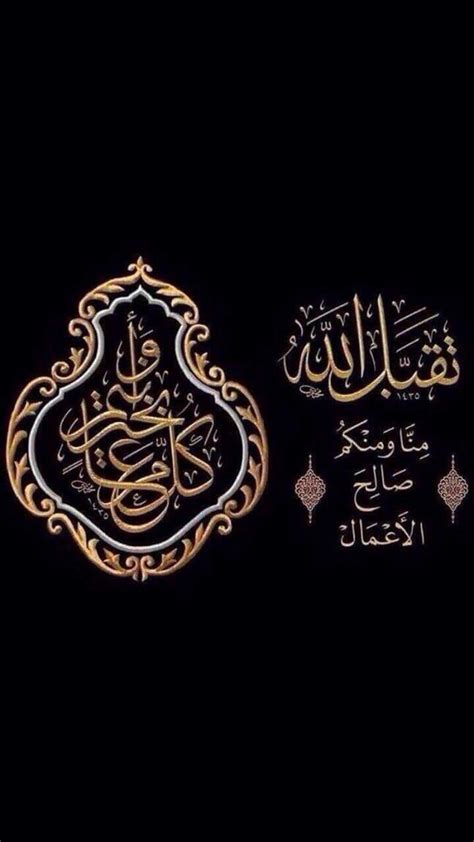 تقبل الله
١٤٣٥
مِنَّا وَمِنْكُم
صَالِحَ
الأَعْمَالْ
كل عام
وأنتم بخير
١٤٣٥